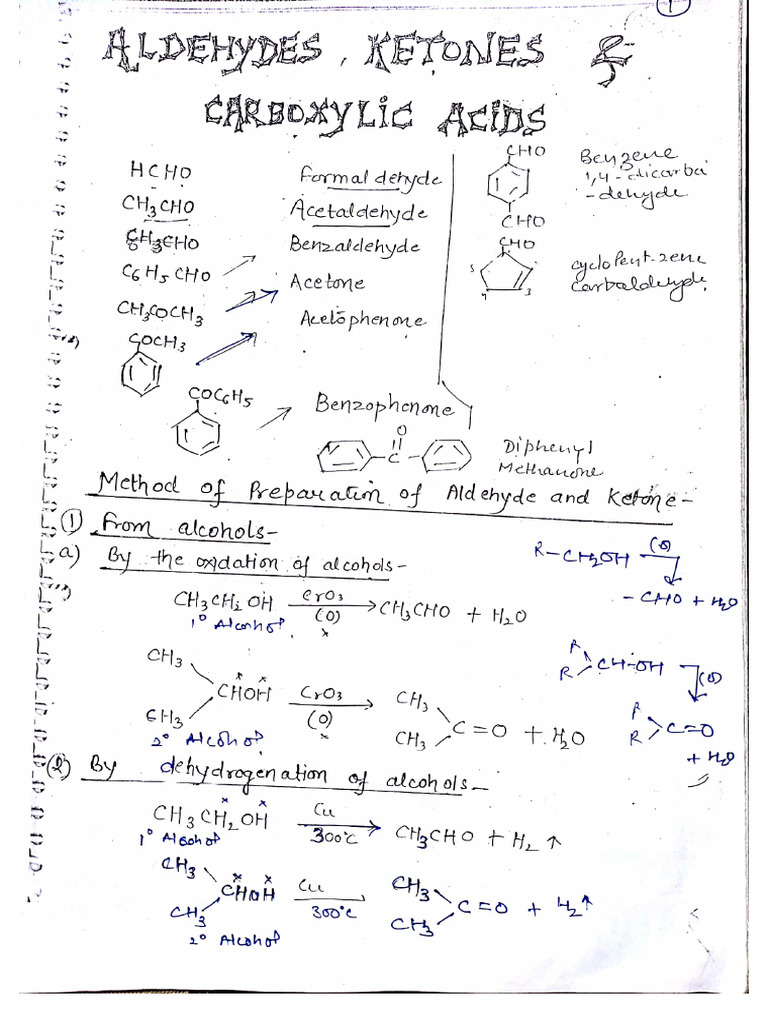 1
ALDEHYDES, KETONES &
CARBOXYLIC ACIDS
HCHO Formaldehyde
CH3CHO Acetaldehyde
Benzaldehyde
C6H5CHO
Acetone
CH3COCH3
Acetophenone
COCH3
COC6H5
Benzophenone
CHO
CHO
Benzene
1,4-dicarba
-dehyde
CHO
5
4
3
cyclopent-zene
carbaldehyde
O
C
Diphenyl
Methanone
Method of Preparation of Aldehyde and Ketone-
① From alcohols-
a) By the oxdation of alcohols-
R-CH2OH (O)
-CHO + H2O
CH3CH2OH CrO3 (O) CH3CHO + H2O
1° Alcohol
x
R
R
CH-OH (O)
CH3
CH3
CHOH CrO3 (O)
x
CH3
CH3
C=O + H2O
2° Alcohol
R
R
C=O
+ H2O
② By dehydrogenation of alcohols-
CH3CH2OH Cu 300°C CH3CHO + H2↑
1° Alcohol
CH3
CH3
CHOH Cu 300°C
CH3
CH3
C=O + H2↑
2° Alcohol